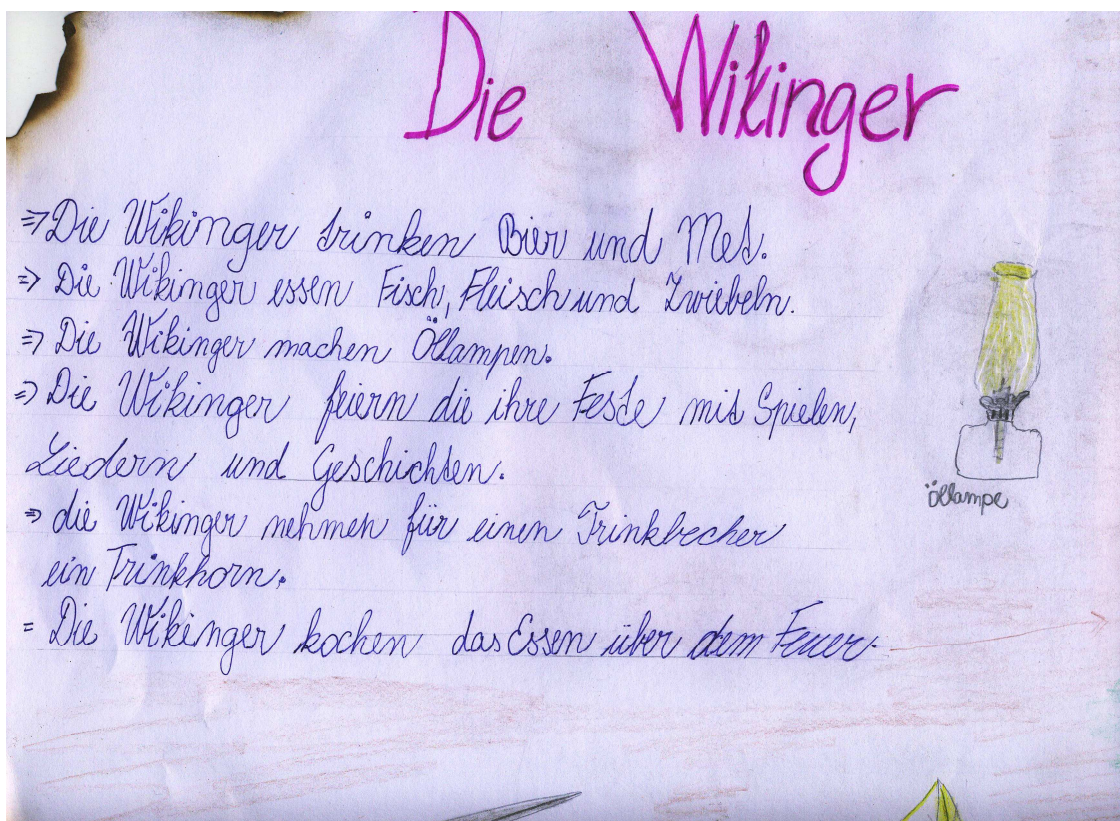 Die Wikinger
⇒ Die Wikinger trinken Bier und Met.
⇒ Die Wikinger essen Fisch, Fleisch und Zwiebeln.
⇒ Die Wikinger machen Öllampen.
⇒ Die Wikinger feiern die ihre Feste mit Spielen,
Liedern und Geschichten.
⇒ die Wikinger nehmen für einen Trinkbecher
ein Trinkhorn.
= Die Wikinger kochen das Essen über dem Feuer.
Öllampe